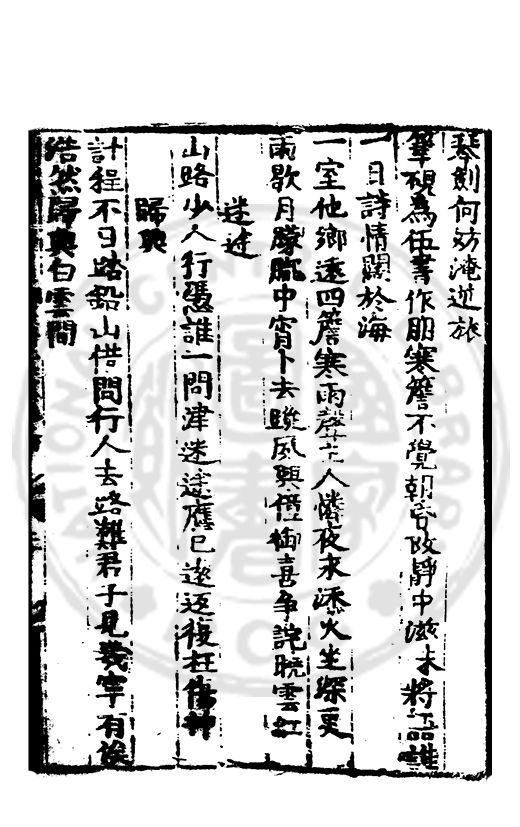 琴劍何妨淹逆旅
筆硯為伍書作朋寒簷不覺朝昏改靜中滋味將語誰
一日詩情闊於海
一室他鄉遠四簷寒雨聲主人憐夜永添火坐深更
雨歇月朦朧中宵卜去蹤風興僮御喜爭說曉雲紅
迷途
山路少人行憑誰一問津迷途應已遠返復枉傷神
歸興
計程不日踏鉛山借問行人去路難君子見幾寧有俟
浩然歸興白雲間